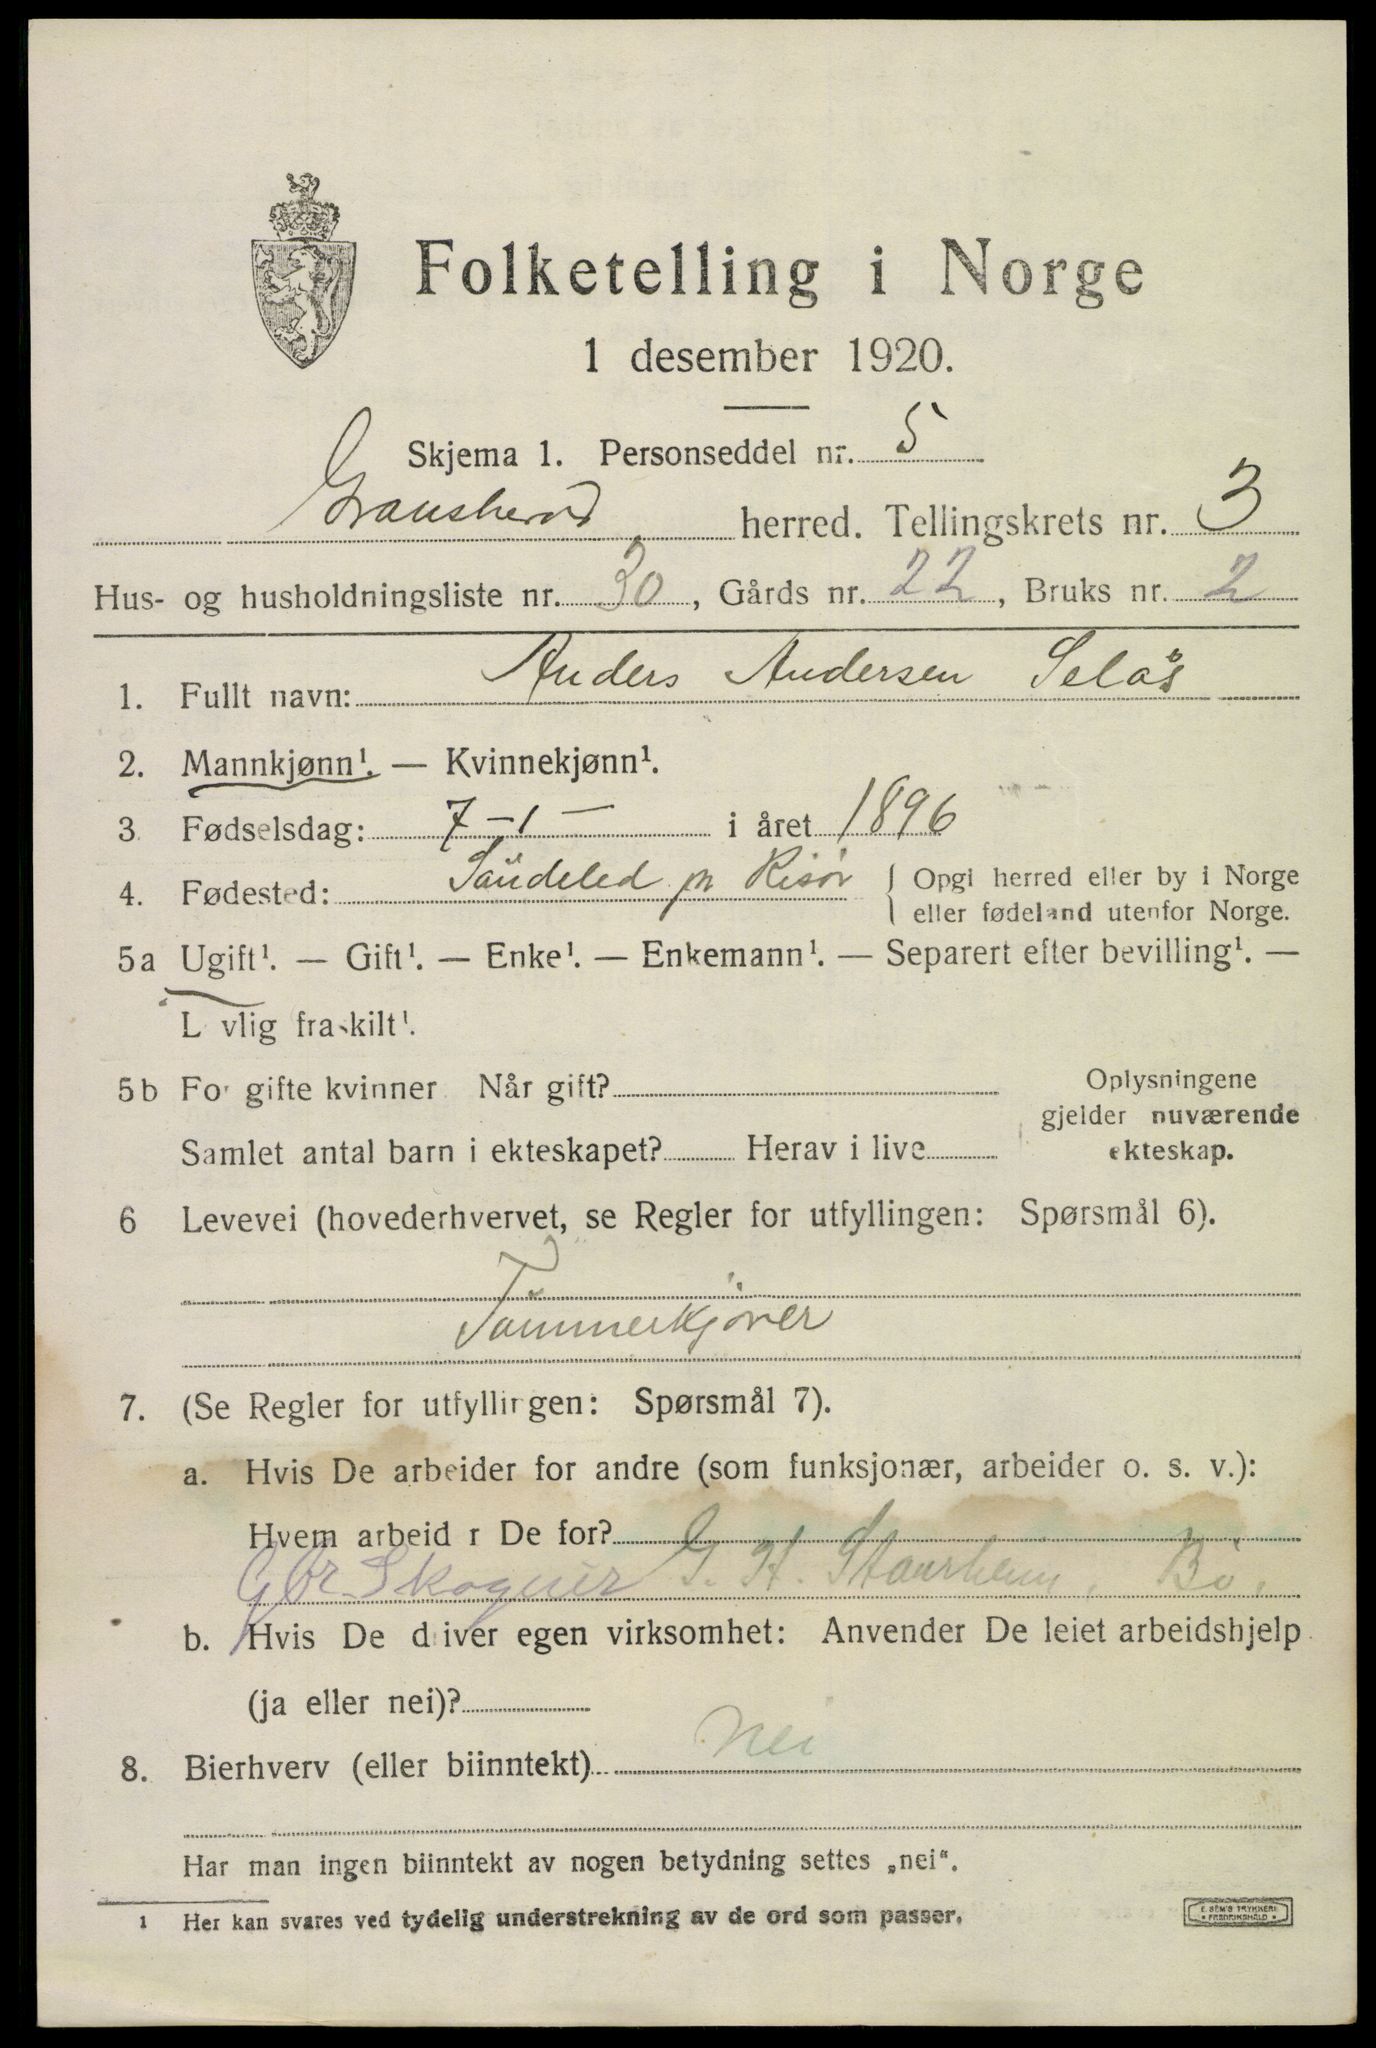 Folketelling i Norge
1 desember 1920.
Skjema 1. Personseddel nr. 5
Gransherad herred. Tellingskrets nr. 3
Hus- og husholdningsliste nr. 30, Gårds nr. 22, Bruks nr. 2
1. Fullt navn: Anders Andersen Selås
2. Mannkjønn¹. — Kvinnekjønn¹.
3. Fødselsdag: 7-1- i året 1896
4. Fødested: Söndeled pr Risør { Opgi herred eller by i Norge
eller fødeland utenfor Norge.
5a Ugift¹. — Gift¹. — Enke¹. — Enkemann¹. — Separert efter bevilling¹. —
L vlig fraskilt¹.
5b For gifte kvinner Når gift?
Oplysningene
gjelder nuværende
ekteskap.
Samlet antal barn i ekteskapet? Herav i live
6 Levevei (hovederhvervet, se Regler for utfyllingen: Spørsmål 6).
Tömmerkjörer
7. (Se Regler for utfyllingen: Spørsmål 7).
a. Hvis De arbeider for andre (som funksjonær, arbeider o. s. v.):
Hvem arbeid r De for?
Skogeier G. H. Staurheim, Bö.
b. Hvis De driver egen virksomhet: Anvender De leiet arbeidshjelp
(ja eller nei)?
8. Bierhverv (eller biinntekt) Nei
Har man ingen biinntekt av nogen betydning settes „nei“.
1 Her kan svares ved tydelig understrekning av de ord som passer.
E. SEM'S TRYKKERI
FREDRIKSHALD